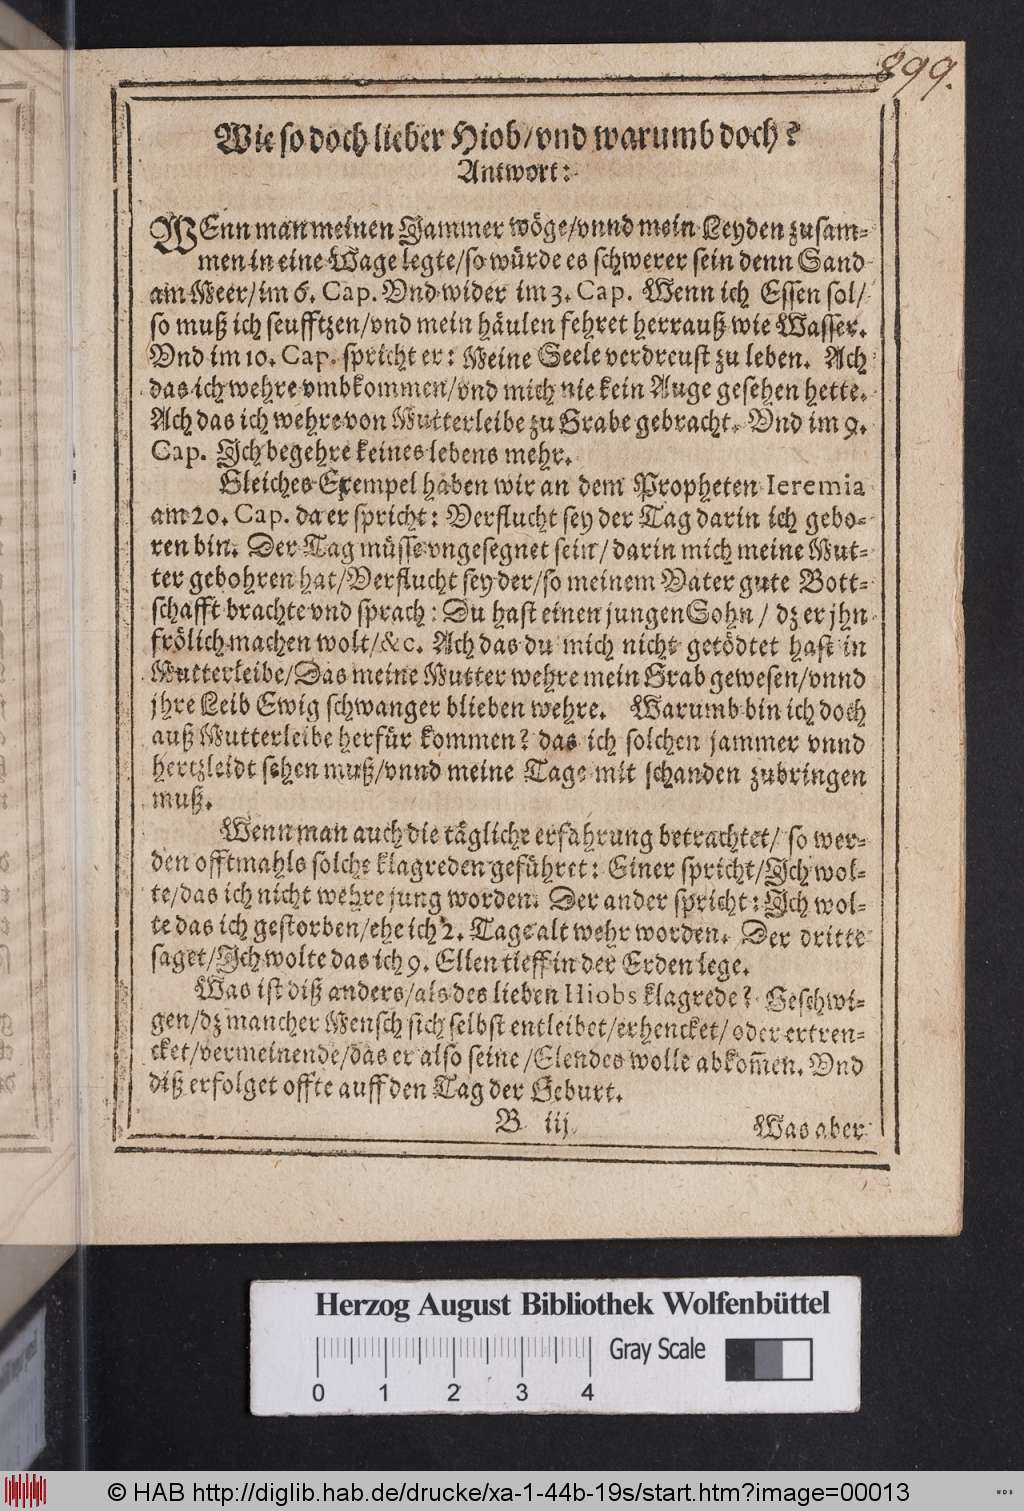 899.
Wie so doch lieber Hiob/vnd warumb doch?
Antwort:
WEnn man meinen Jammer wöge/vnnd mein Leyden zusam-
men in eine Wage legte/so würde es schwerer sein denn Sand
am Meer/im 6. Cap. Vnd wider im 3. Cap. Wenn ich Essen sol/
so muß ich seufftzen/vnd mein häulen fehret herrauß wie Wasser.
Vnd im 10. Cap. spricht er: Meine Seele verdreust zu leben. Ach
das ich wehre vmbkommen/vnd mich nie kein Auge gesehen hette.
Ach das ich wehre von Mutterleibe zu Grabe gebracht. Vnd im 9.
Cap. Ich begehre keines lebens mehr.
Gleiches Exempel haben wir an dem Propheten Ieremia
am 20. Cap. da er spricht: Verflucht sey der Tag darin ich gebo-
ren bin. Der Tag müsse vngesegnet sein/darin mich meine Mut-
ter gebohren hat/Verflucht sey der/so meinem Vater gute Bott-
schafft brachte vnd sprach: Du hast einen jungen Sohn/ dz er jhn
frölich machen wolt/&c. Ach das du mich nicht getödtet hast in
Mutterleibe/Das meine Mutter wehre mein Grab gewesen/vnnd
jhre Leib Ewig schwanger blieben wehre. Warumb bin ich doch
auß Mutterleibe herfür kommen? das ich solchen jammer vnnd
hertzleidt sehen muß/vnnd meine Tage mit schanden zubringen
muß.
Wenn man auch die tägliche erfahrung betrachtet/ so wer-
den offtmahls solche klagreden geführet: Einer spricht/Ich wol-
te/das ich nicht wehre jung worden. Der ander spricht: Ich wol-
te das ich gestorben/ehe ich 2. Tage alt wehr worden. Der dritte
saget/Ich wolte das ich 9. Ellen tieff in der Erden lege.
Was ist diß anders/als des lieben Hiobs klagrede? Geschwi-
gen/dz mancher Mensch sich selbst entleibet/erhencket/oder ertren-
cket/vermeinende/das er also seine/Elendes wolle abkom̃en. Vnd
diß erfolget offte auff den Tag der Geburt.
B iij
Was aber
Herzog August Bibliothek Wolfenbüttel
Gray Scale
0 1 2 3 4
© HAB http://diglib.hab.de/drucke/xa-1-44b-19s/start.htm?image=00013